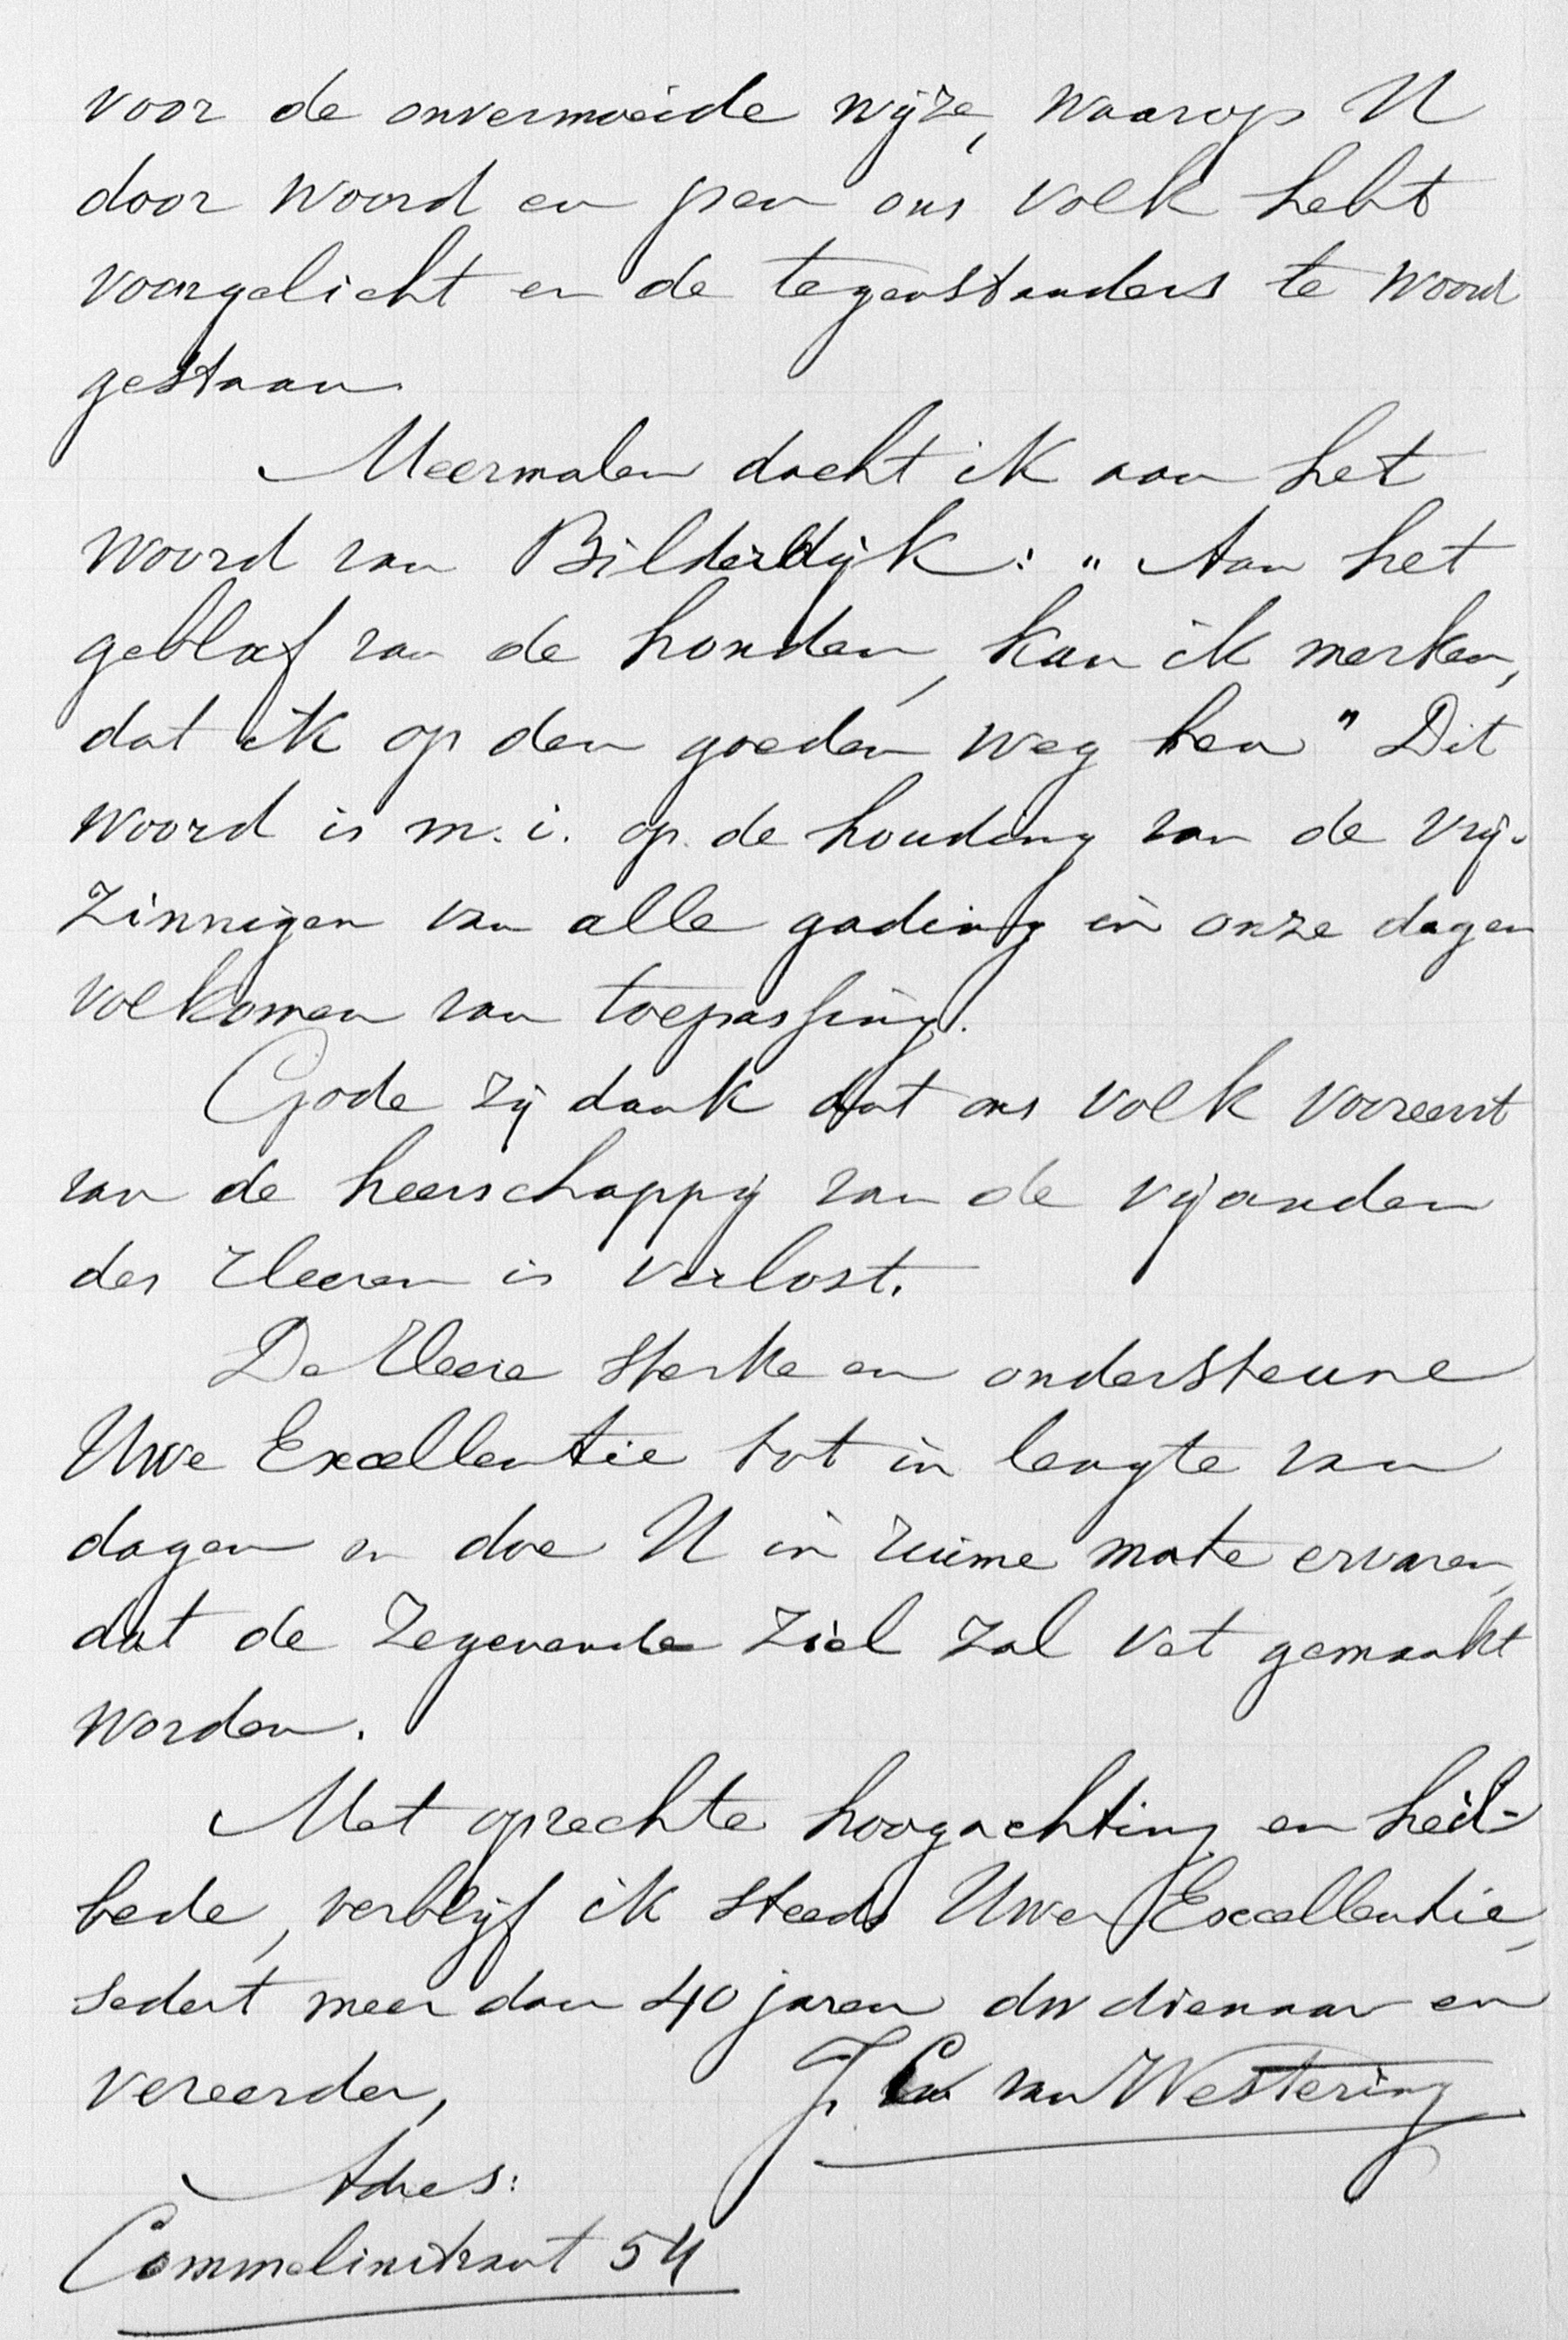 voor de onvermoeide wijze, waarop U
door woord en pen ons volk hebt
voorgelicht en de tegenstanders te woord
gestaan.
Meermalen dacht ik aan het
woord van Bilderdijk: „Aan het
geblaf van de honden, kan ik merken,
dat ik op den goeden weg ben" Dit
woord is m.i. op de houding van de vrij-
zinnigen van alle gading in onze dagen
volkomen van toepassing.
Gode zij dank dat ons volk vooreerst
van de heerschappij van de vijanden
des Heeren is verlost.
De Heere sterke en ondersteune
Uwe Excellentie tot in lengte van
dagen en doe U in ruime mate ervaren,
dat de zegenende ziel zal vet gemaakt
worden.
Met oprechte hoogachting en heil-
bede, verblijf ik steeds Uwer Excellentie,
sedert meer dan 40 jaren dw dienaar en
vereerder, J. van Westering
Adres:
Commelinstraat 54